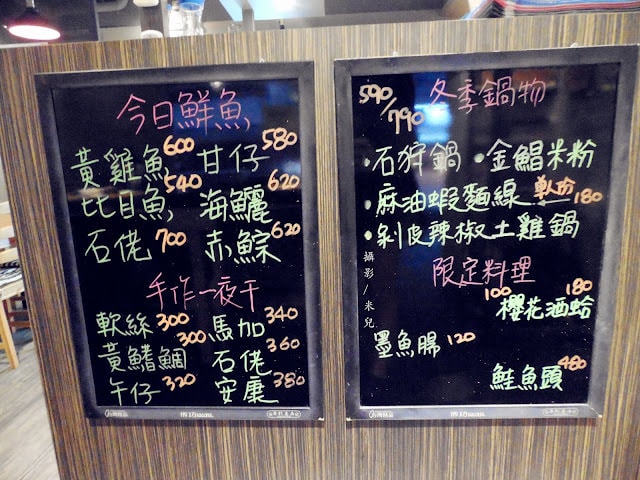 今日鮮魚
黃雞魚 600 甘仔 580
比目魚 540 海鱺 620
石佬 700 赤鯮 620
手作一夜干
軟絲 300 馬加 340
黃鰭鯛 300 石佬 360
午仔 320 安康 380
590/790 冬季鍋物
•石狩鍋 •金鯧米粉
•麻油蝦麵線 單份 180
•剝皮辣椒土雞鍋
限定料理
100 櫻花酒蛤 180
墨魚腸 120
鮭魚頭 480
攝影/米兒